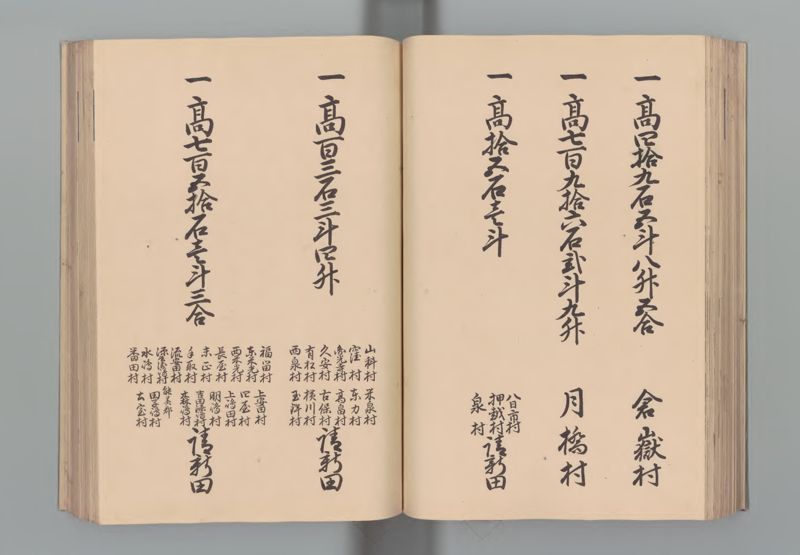 一 高四拾九石五斗八升五合
倉嶽村
一 高七百九拾六石弐斗九升
月橋村
一 高拾五石壱斗
八日市村
押越村
泉村
請新田
一 高百三石三斗四升
山科村 米泉村
窪村 東力村
高畠村
久安村 古保村
有松村 横川村
西泉村 玉鉾村
請新田
一 高七百五拾石壱斗三合
福留村 上安田村
東米光村 四屋村
西米光村 上嶋田村
長屋村 明嶋村
末正村
手取村 森嶋村
源兵衛嶋村 能美郡
水嶋村 田子嶋村
番田村
請新田